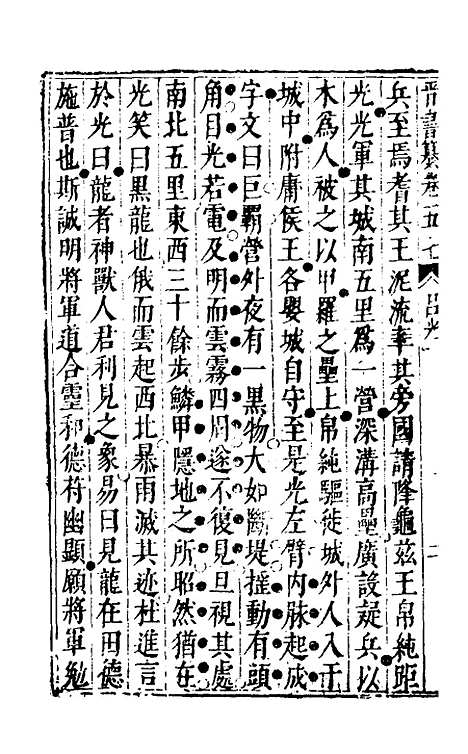 晉書纂卷五七 呂光 二
兵至焉耆其王泥流率其旁國請降龜茲王帛純距
光光軍其城南五里爲一營深溝高壘廣設疑兵以
木爲人被之以甲羅之壘上帛純驅徙城外人入于
城中附庸侯王各嬰城自守至是光左臂內脉起成
字文曰巨霸營外夜有一黑物大如斷堤搖動有頭
角目光若電及明而雲霧四周遂不復見旦視其處
南北五里東西三十餘步鱗甲隱地之所昭然猶在
光笑曰黑龍也俄而雲起西北暴雨滅其迹杜進言
於光曰龍者神獸人君利見之象易曰見龍在田德
施普也斯誠明將軍道合靈和德符幽顯願將軍勉